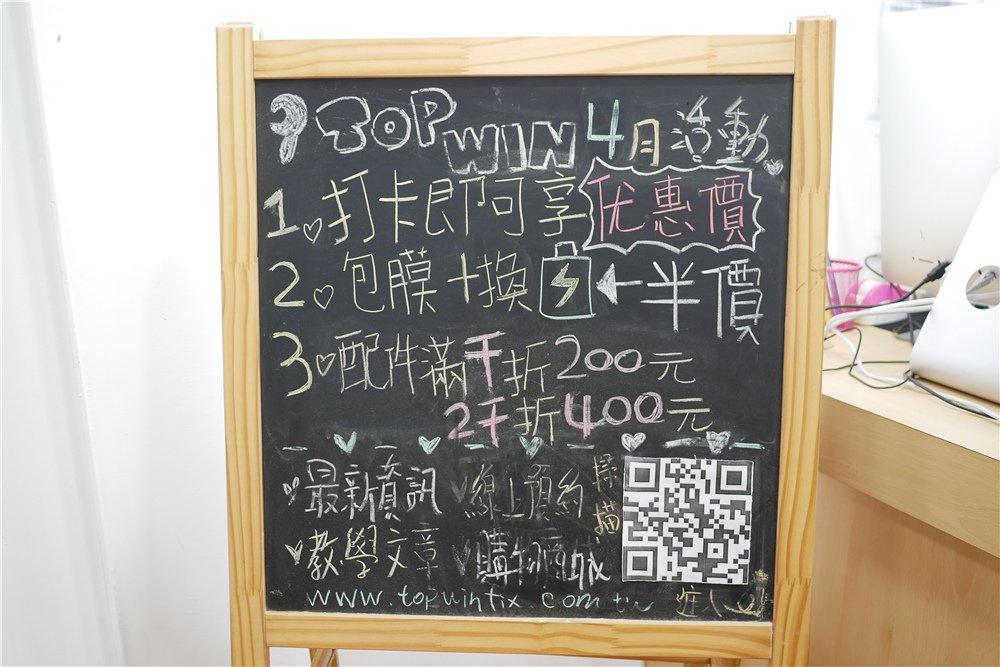 TOP WIN 4月活動
1. 打卡即可享优惠價
2. 包膜+換←半價
3 配件滿千折200元
2千折400元
最新資訊 線上預約 掃描
教學文章 購物商城
www.topwinfix.com.tw